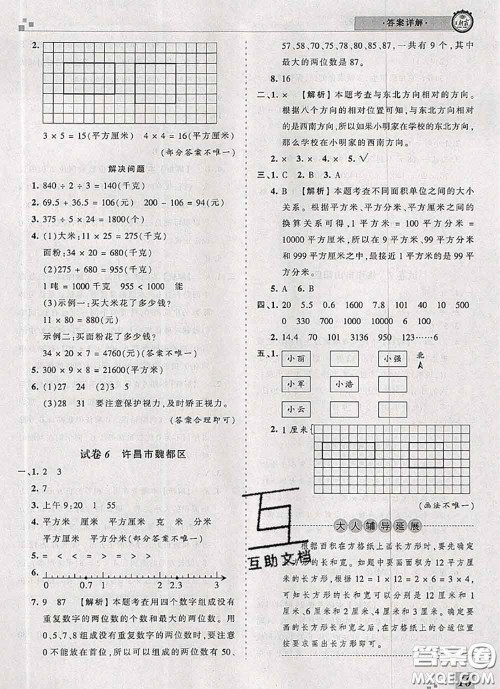 ·答案详解·
2.
3×5=15(平方厘米) 4×4=16(平方厘米)
(部分答案不唯一)
解决问题
1. 840÷2÷3=140(千克)
2. 69.5+36.5=106(元) 106>100 不够
3. 375÷5×24=1800(个)
4. (1)大米:11×25=275(千克)
面粉:34×20=680(千克)
1吨=1000千克 955<1000 能
(3)示例一:买大米花了多少钱?
11×80=880(元)
示例二:买面粉花了多少钱?
34×20×7=4760(元)(答案不唯一)
5. 300×9×8=21600(平方厘米)
6. (1)27 24 (2)3 5
(3)28 31 要注意保护视力,及时矫正视力。
(答案合理即可)
试卷6 许昌市魏都区
一、1. 2 3
2. 6
3. 上午9:20 1 15
4. 平方米 平方厘米 平方千米 克 米 分米
5. < < = > > <
6.
0 1 1.2 2 2.7 3
7. 9 87 【解析】本题考查用四个数字组成没有
重复数字的两位数的个数和最大的两位数。用
0,5,7,8组成没有重复数字的两位数时要注意
0不能放在首位,所以组成的两位数有50,
57,58,70,75,78,80,85,87,一共有9个,其中
最大的两位数是87。
8. 16
二、1. × 【解析】本题考查与东北方向相对的方向。
根据八个方向的相对位置可知,与东北方向相对
的是西南方向,所以如果小明家在学校的东北方向,
那么学校在小明家的西南方向。
2. × 3. × 4. × 5. √
三、1. C 2. A 3. C
4. B 【解析】本题考查不同面积单位之间的大小
关系。根据平方米、平方分米、平方厘米之间的
换算关系可得,1平方米=100平方分米=
10000平方厘米,所以在99平方米、99平方分米
和999平方分米中,最接近1平方米的是99平方
分米。
5. A 6. B
四、1. 20 5.5 0.6 1580 2000 10 100
0 330 0 1000 7.9 4 500
2. 14.4 70 101 135 950 123……6
五、1. 小丽 小强 北
小军 小浩
小云
2. 1厘米
(画法不唯一)
大人辅导延展
根据面积在方格纸上画长方形时,要先确定
长方形的长和宽。如题中要画面积为12平方厘
米的长方形,因为12=2×6=3×4,所以可以画
长6厘米、宽2厘米或长4厘米、宽3厘米的长方
形。根据长方形的长和宽,在方格纸上合适位置
处画出长方形即可。
互助文档
答案圈